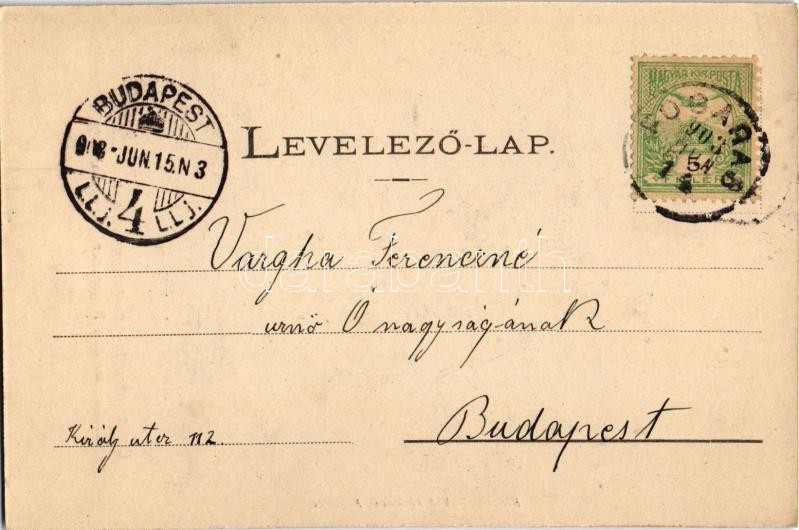 BUDAPEST
903-JUN.15.N3
L.L.J. 4 L.L.J.
MAGYAR KIR. POSTA
LEVELEZŐ-LAP.
Vargha Ferencné
urnő Ő nagyságának
Budapest
Király utcz 112.
darabanth